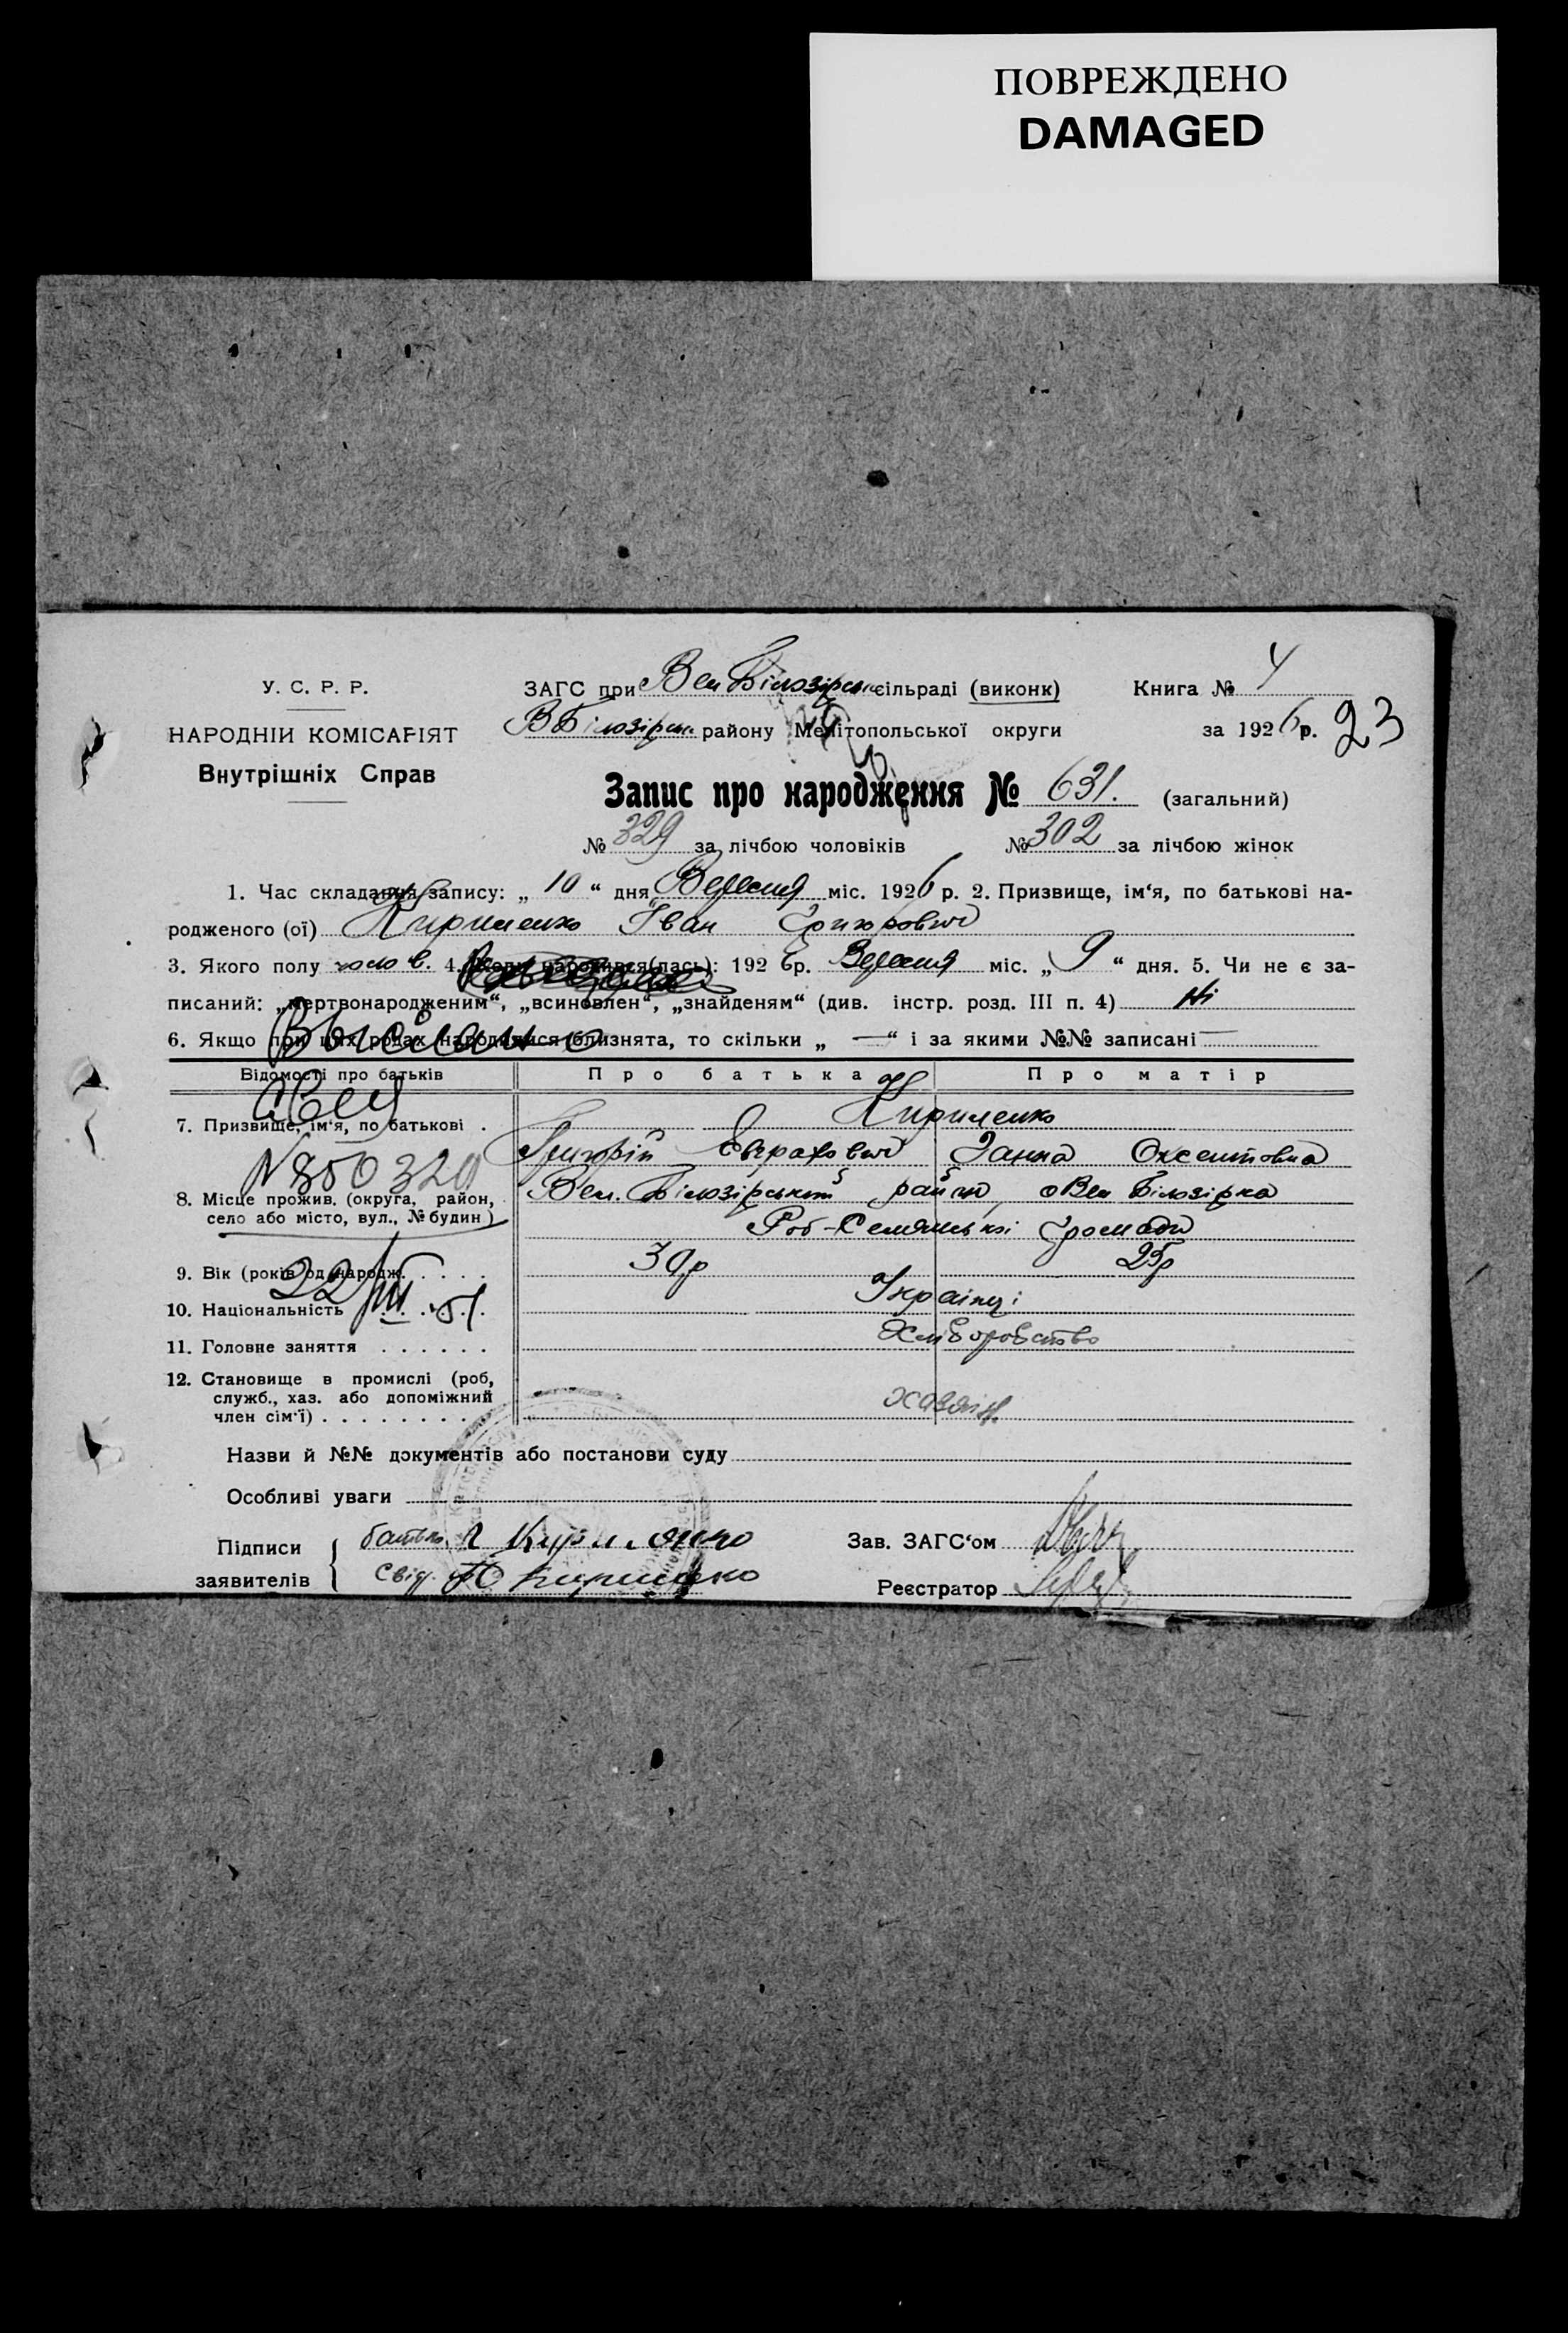 ПОВРЕЖДЕНО
DAMAGED
У. С. Р. Р.
НАРОДНІЙ КОМІСАРІЯТ
Внутрішніх Справ
ЗАГС при Вел Білозірськ сільраді (виконк)
В Білозірськ району Мелітопольської округи
Книга № 4
за 1926 р. 23
Запис про народження № 631. (загальний)
№ 329 за лічбою чоловіків № 302 за лічбою жінок
1. Час складання запису: „ 10 “ дня Вересня міс. 1926 р. 2. Призвище, ім‘я, по батькові на-
родженого (ої) Кириленко Іван Григорович
3. Якого полу чолов. 4. Коли народився(лась): 1926 р. Вересня міс. „ 9 “ дня. 5. Чи не є за-
писаний: „мертвонародженим“, „всиновлен“, „знайденям“ (див. інстр. розд. III п. 4) Ні
6. Якщо при цих родах народилися близнята, то скільки „ — “ і за якими №№ записані —
Выслано
Відомості про батьків Про батька Про матір
7. Призвище, ім‘я, по батькові . Кириленко
Григорій Євграфович Ганна Оксентовна
8. Місце прожив. (округа, район,
село або місто, вул., № будин) Вел. Білозірський район, с Вел Білозірка
Роб-Селянські Громади
9. Вік (років од народж. . . . . 30р 25р
10. Національність . . . . Українці
11. Головне заняття . . . . . . Хліборобство
12. Становище в промислі (роб,
служб., хаз. або допоміжний
член сім‘ї) . . . . . . . . хазяїн.
22/III 51
Назви й №№ документів або постанови суду
Особливі уваги
Підписи батько Г Кириленко Зав. ЗАГС‘ом
заявителів свід. Ю Кириленко Реєстратор